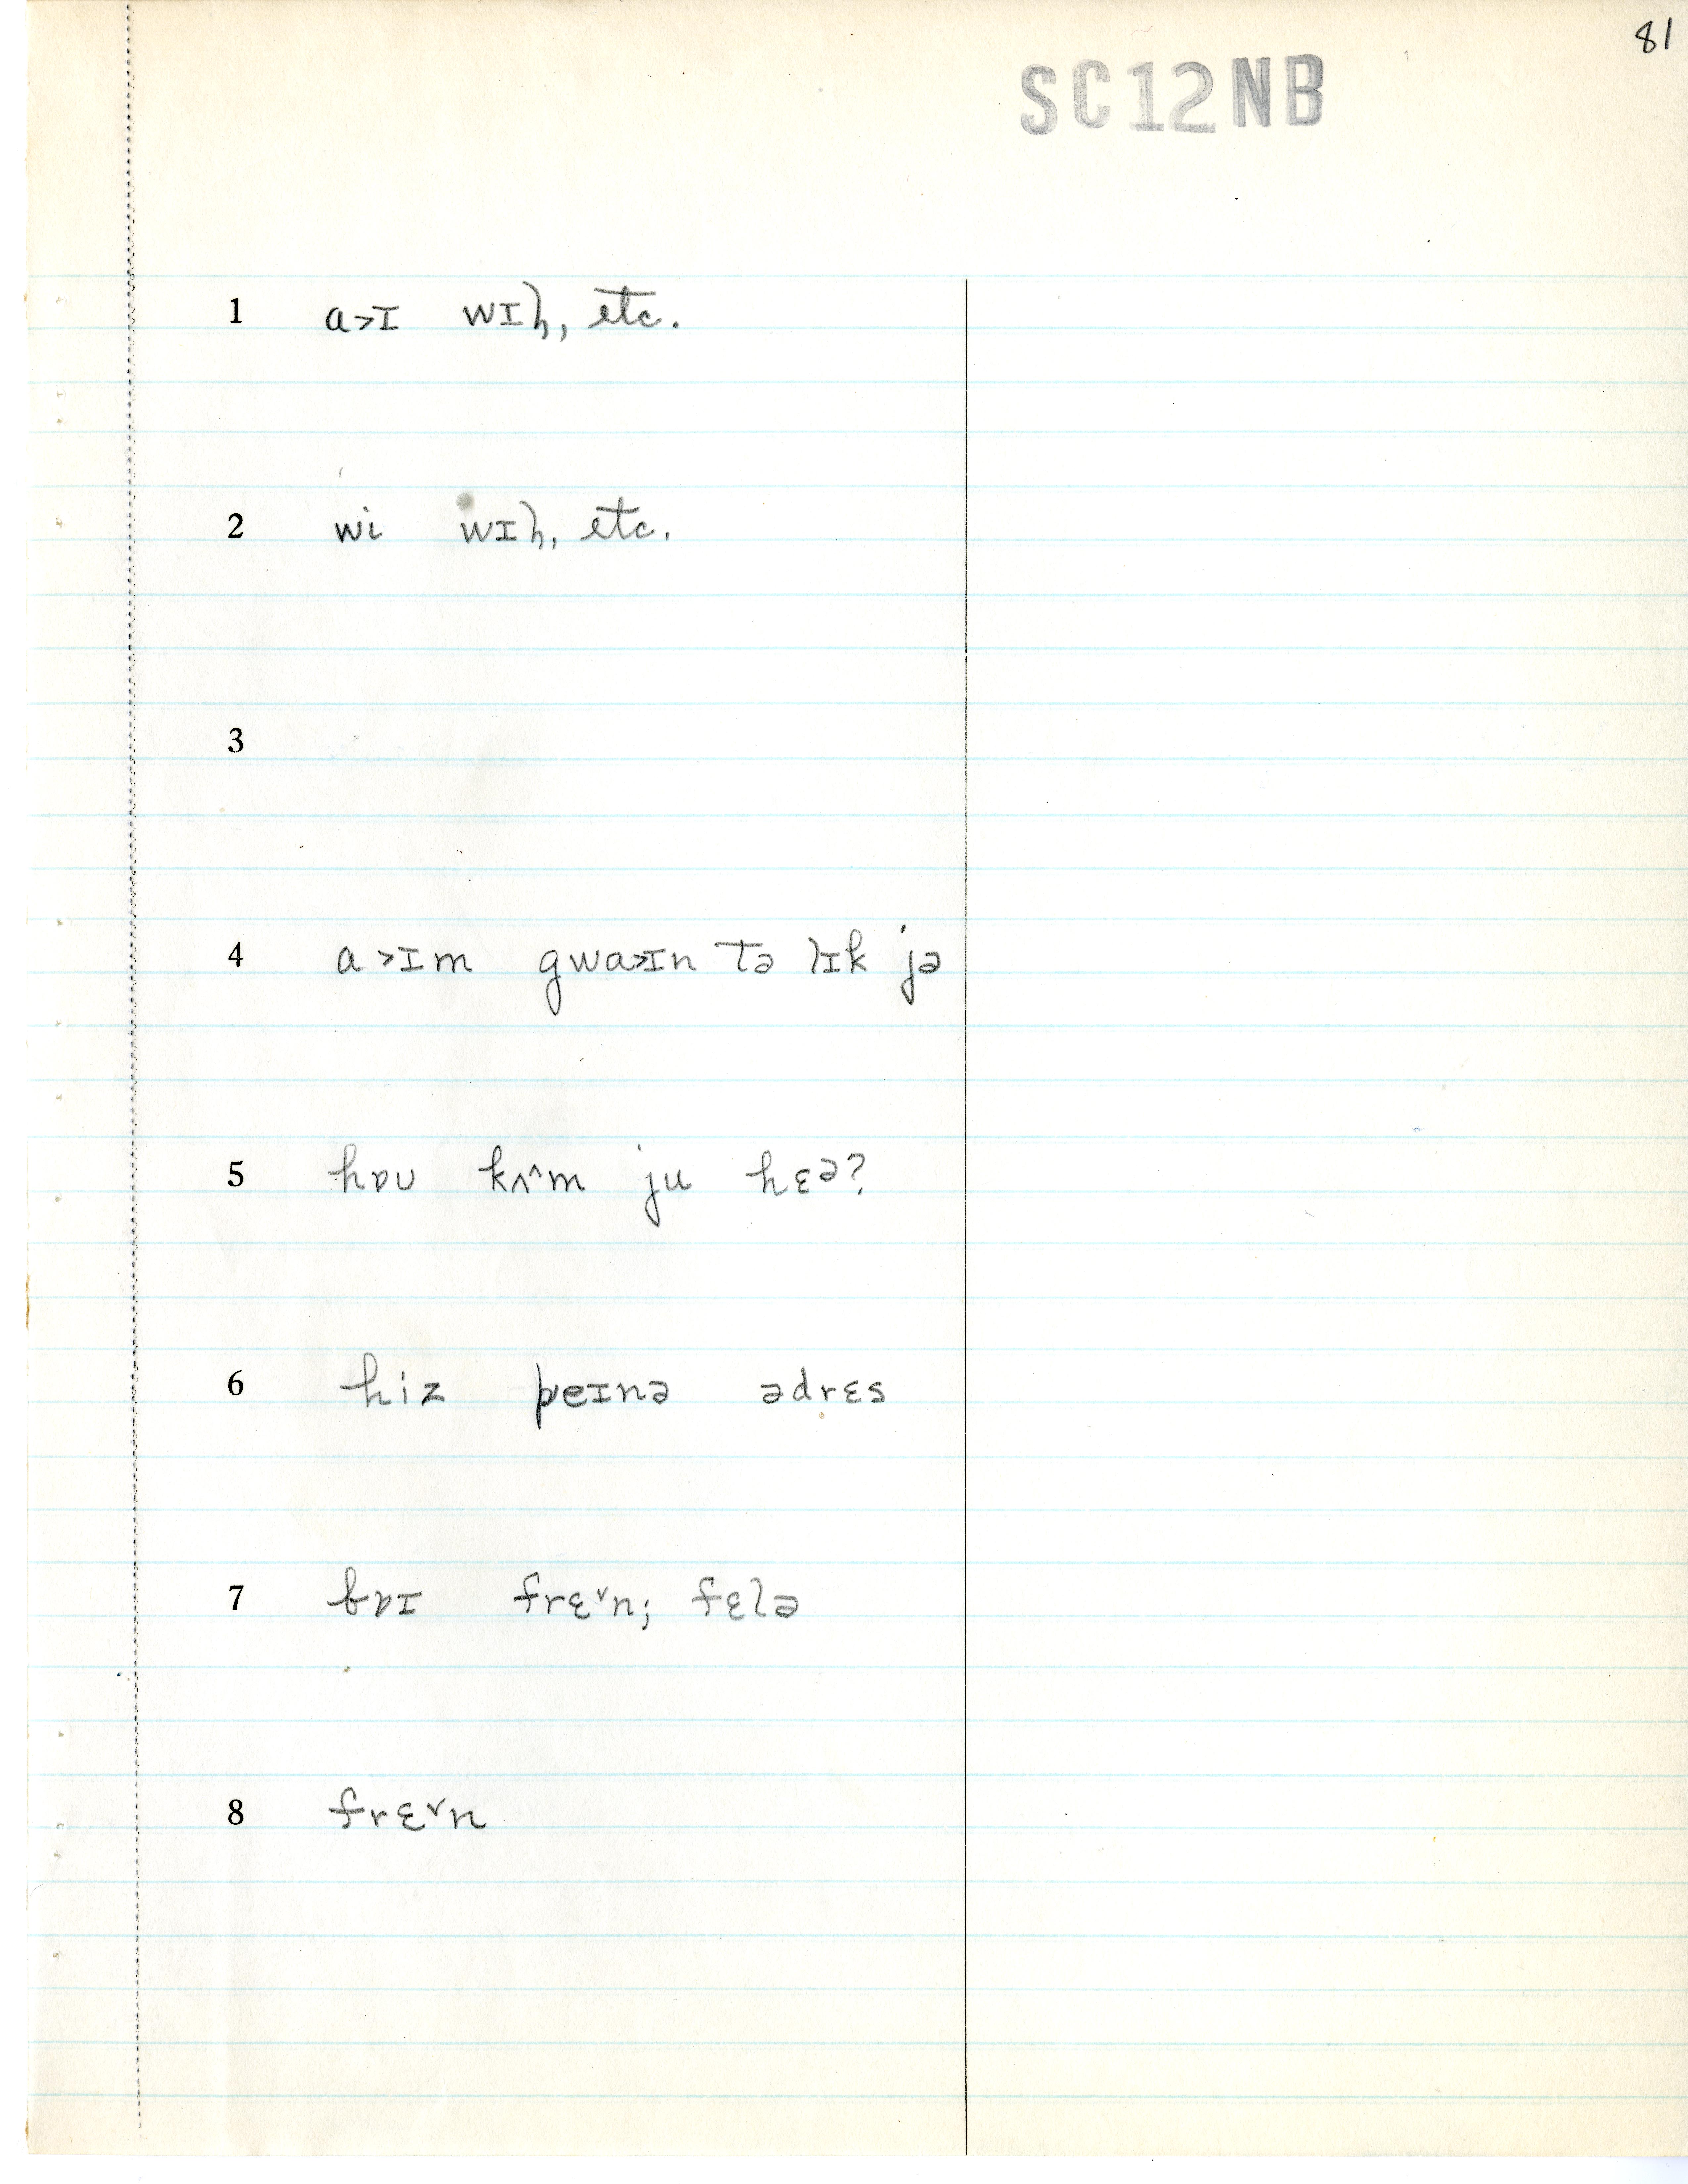 81
SC12NB
1 a>ɪ wɪɫ, etc.
2 wi wɪɫ, etc.
3
4 a>ɪm gwa>ɪn tə lɪk jə
5 hɒʊ kʌ^m ju hɛə?
6 hiz peɪnə ədrɛs
7 bɒɪ frɛ˅n; fɛlə
8 frɛ˅n